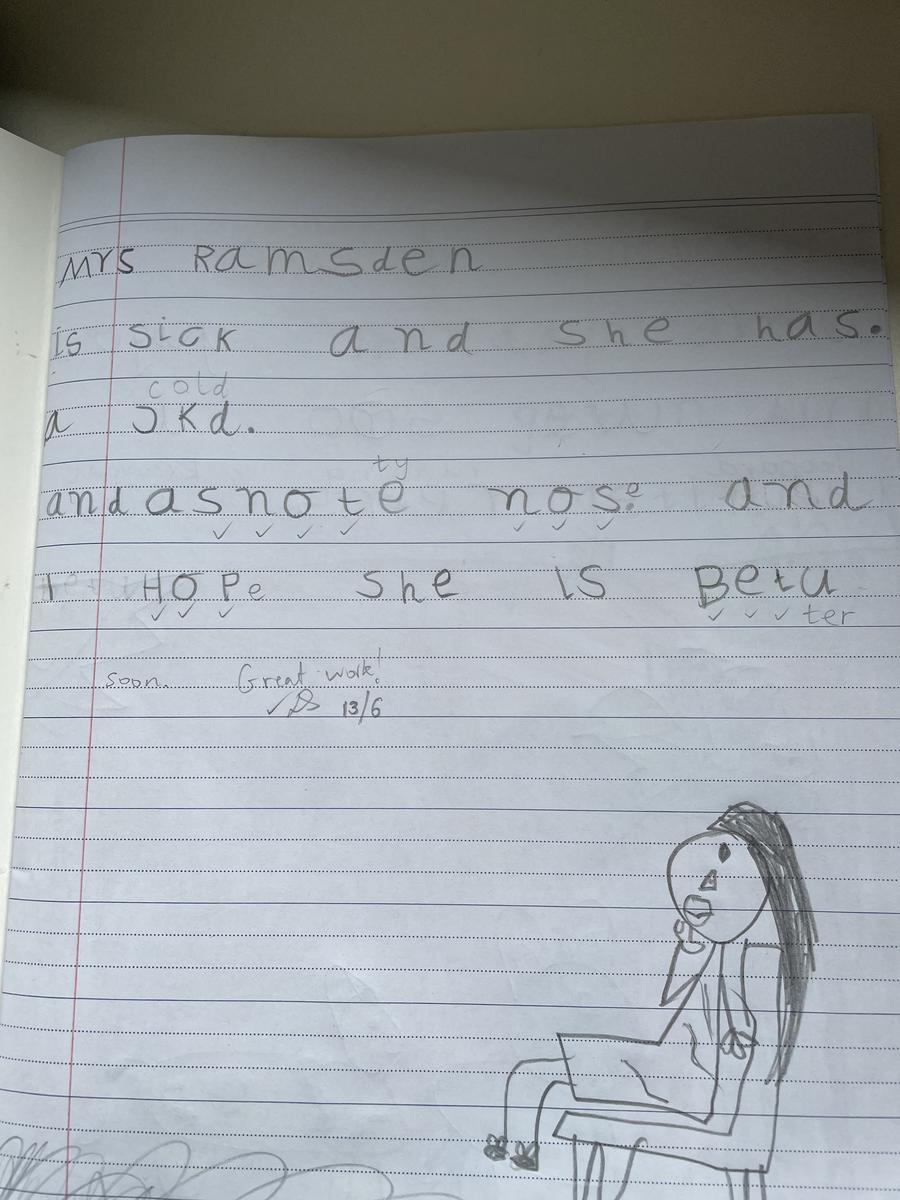 Mrs Ramsden
is sick and she has.
cold
a Jkd.
ty
and asnote nose. and
I HOPe she is Beta
ter
soon. Great work!
13/6